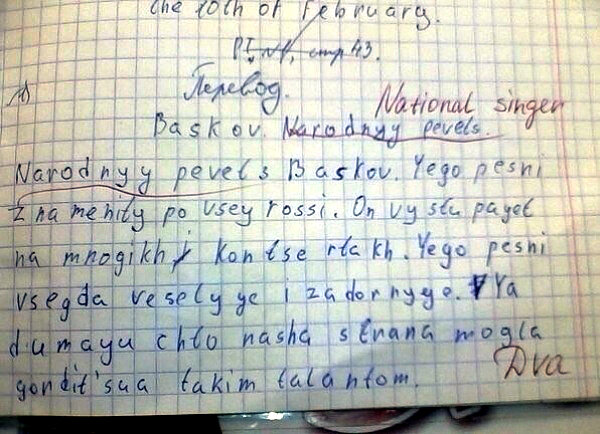 the 10th of February.
стр 43.
Перевод.
National singer
Baskov. Narodnyy pevels.
Narodnyy pevels Baskov. Yego pesni
znamenity po vsey rossi. On vystupayet
na mnogikh kontsertakh. Yego pesni
vsegda veselyye i zadornyye. Ya
dumayu chto nasha strana mogla
gordit'sua takim talantom.
Dva